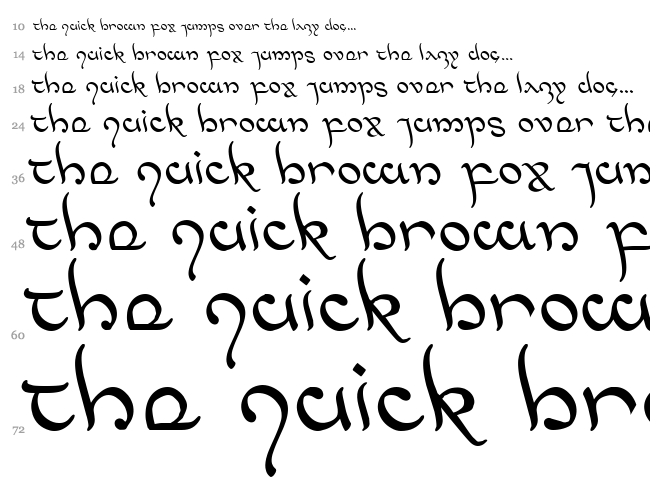 10 the quick brown fox jumps over the lazy dog...
14 the quick brown fox jumps over the lazy dog...
18 the quick brown fox jumps over the lazy dog...
24 the quick brown fox jumps over the
36 the quick brown fox jum
48 the quick brown f
60 the quick brow
72 the quick bro